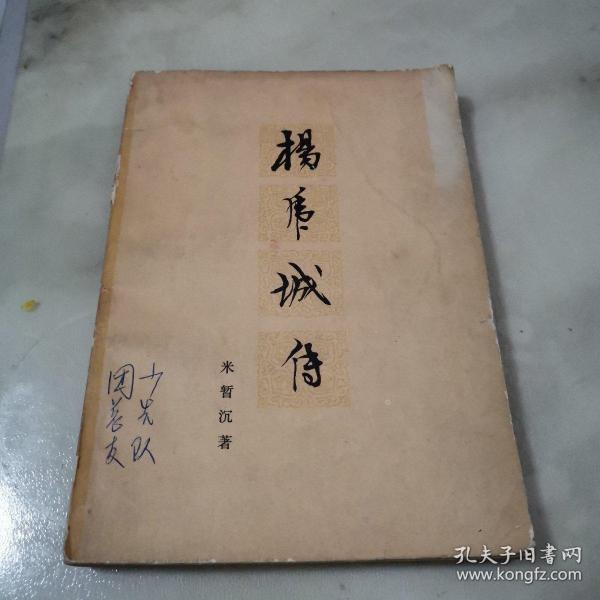 楊虎城傳
米暂沉著
少先队
孔夫子旧書网
www.kongfz.com